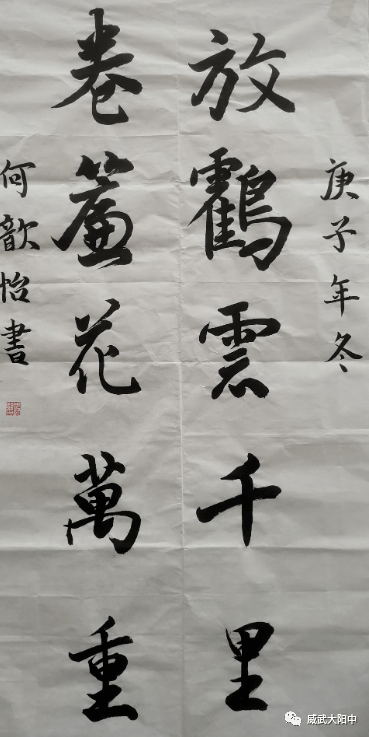 庚子年冬
放鶴雲千里
卷簾花萬重
何歆怡書
威武大阳中